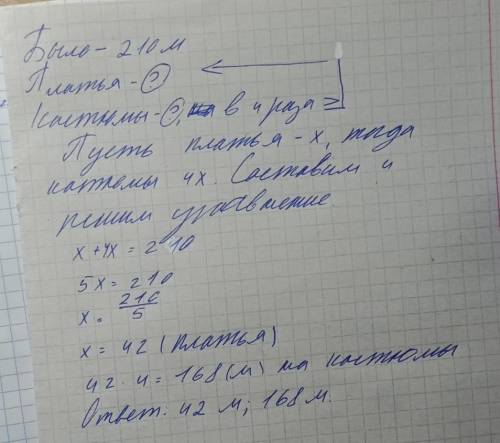 Было - 210 м
Платья - ?
Костюмы - ?, в 4 раза >
Пусть платья - x, тогда
костюмы 4x. Составим и
решим уравнение.
x + 4x = 210
5x = 210
x = 210/5
x = 42 (платья)
42 · 4 = 168 (м) на костюмы
Ответ: 42 м; 168 м.